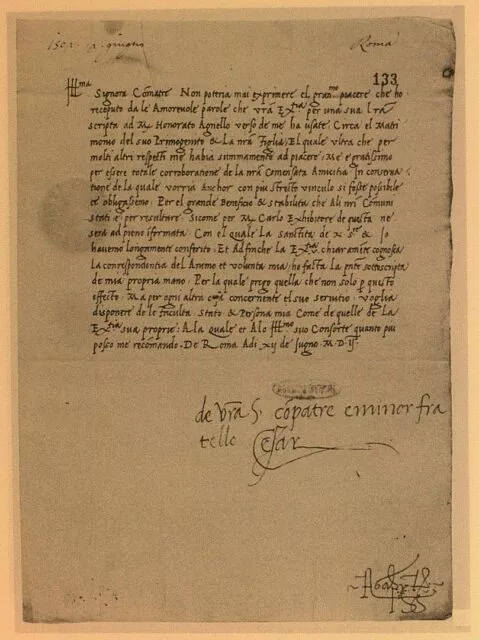 1502 giugno
Roma
133
Ill.ma
Signora Comatre Non poteria mai exprimere el gran.mo piacere che ho
receputo da le Amorevole parole che vra Ex.tia per una sua lra
scripta ad M Honorato Agnello verso de me ha usate Circa el Matri
monio del suo Primogenito & La nra Figlia: El quale ultra che per
molti altri respetti me habia summamente ad piacere: Me e gratissimo
per essere totale corroboratione de la nra Comensata Amicitia In conserva
tione de la quale vorria Anchor con piu stretto vinculo si fosse possibile
te obligassemo: Per el grande Beneficio & stabilita che Ali nri Comuni
stati e per resultare: Sicome per M Carlo Exhibitore de questa ne
sera ad pieno informata: Con el quale La Santita de N S.re & Io
havemo longamente conferito: Et Ad finche la Ex.tia v. chiaramente cognosca
La correspondentia del Animo et volunta mia: ho facta La pnte sottoscripta
de mia propria mano: Per la quale prego quella che non solo p questo
effecto: Ma per ogni altra cosa concernente el suo servitio: Voglia
disponere de le faculta Stato & Persona mia Come de quelle de La
Ex.tia sua proprie: A La quale et Alo Ill.mo suo Consorte quanto piu
posso me recomando. De Roma Adi xij de Jugno. M. D ij.
de vra S. compatre e minor fra
tello Cesar
Agapytus